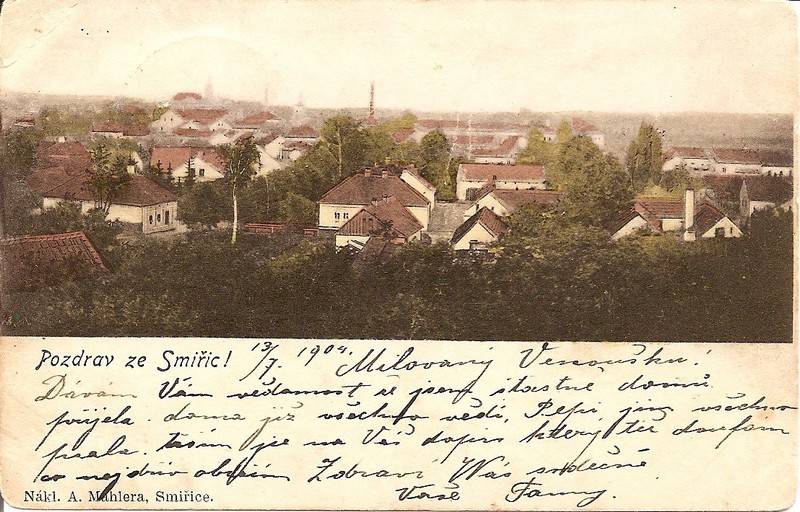 Pozdrav ze Smiřic! 13/7 1904. Milovaný Venoušku!
Dávám Vám vědomost že jsem šťastně domů
přijela. doma již všechno vědí, Pepi jim všechno
psala. těším se na Váš dopis který též doufám
co nejdřív obdržím Zdraví Vás srdečně
Vaše Fanny.
Nákl. A. Mahlera, Smiřice.